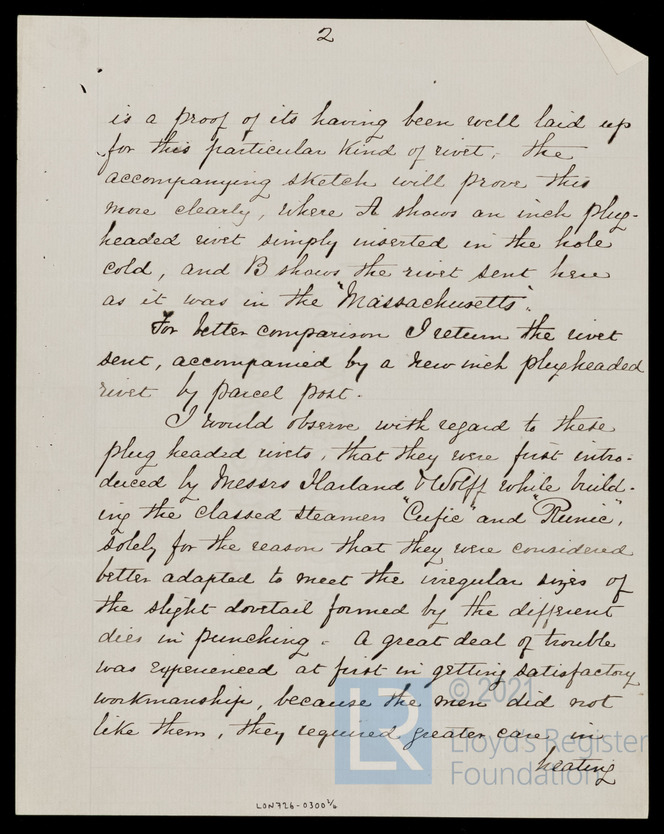 2
is a proof of its having been well laid up
for this particular kind of rivet. The
accompanying sketch will prove this
more clearly, where A shows an inch plug-
headed rivet simply inserted in the hole
cold, and B shows the rivet sent here
as it was in the "Massachusetts".
For better comparison I return the rivet
sent, accompanied by a new inch plugheaded
rivet by parcel post.
I would observe with regard to these
plug headed rivets, that they were first intro-
duced by Messrs Harland & Wolff while build-
ing the classed steamers "Cufic" and "Runic",
solely for the reason that they were considered
better adapted to meet the irregular sizes of
the slight dovetail formed by the different
dies in punching. A great deal of trouble
was experienced at first in getting satisfactory
workmanship, because the men did not
like them, they required greater care in
heating
© 2021
LR
Lloyd's Register
Foundation
LON726-0300 2/6